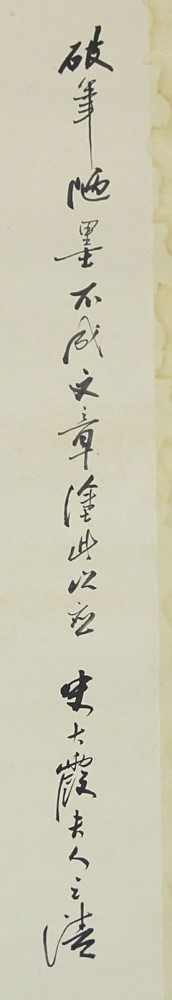 破筆陋墨不成文章塗此以應 史大霞夫人之清